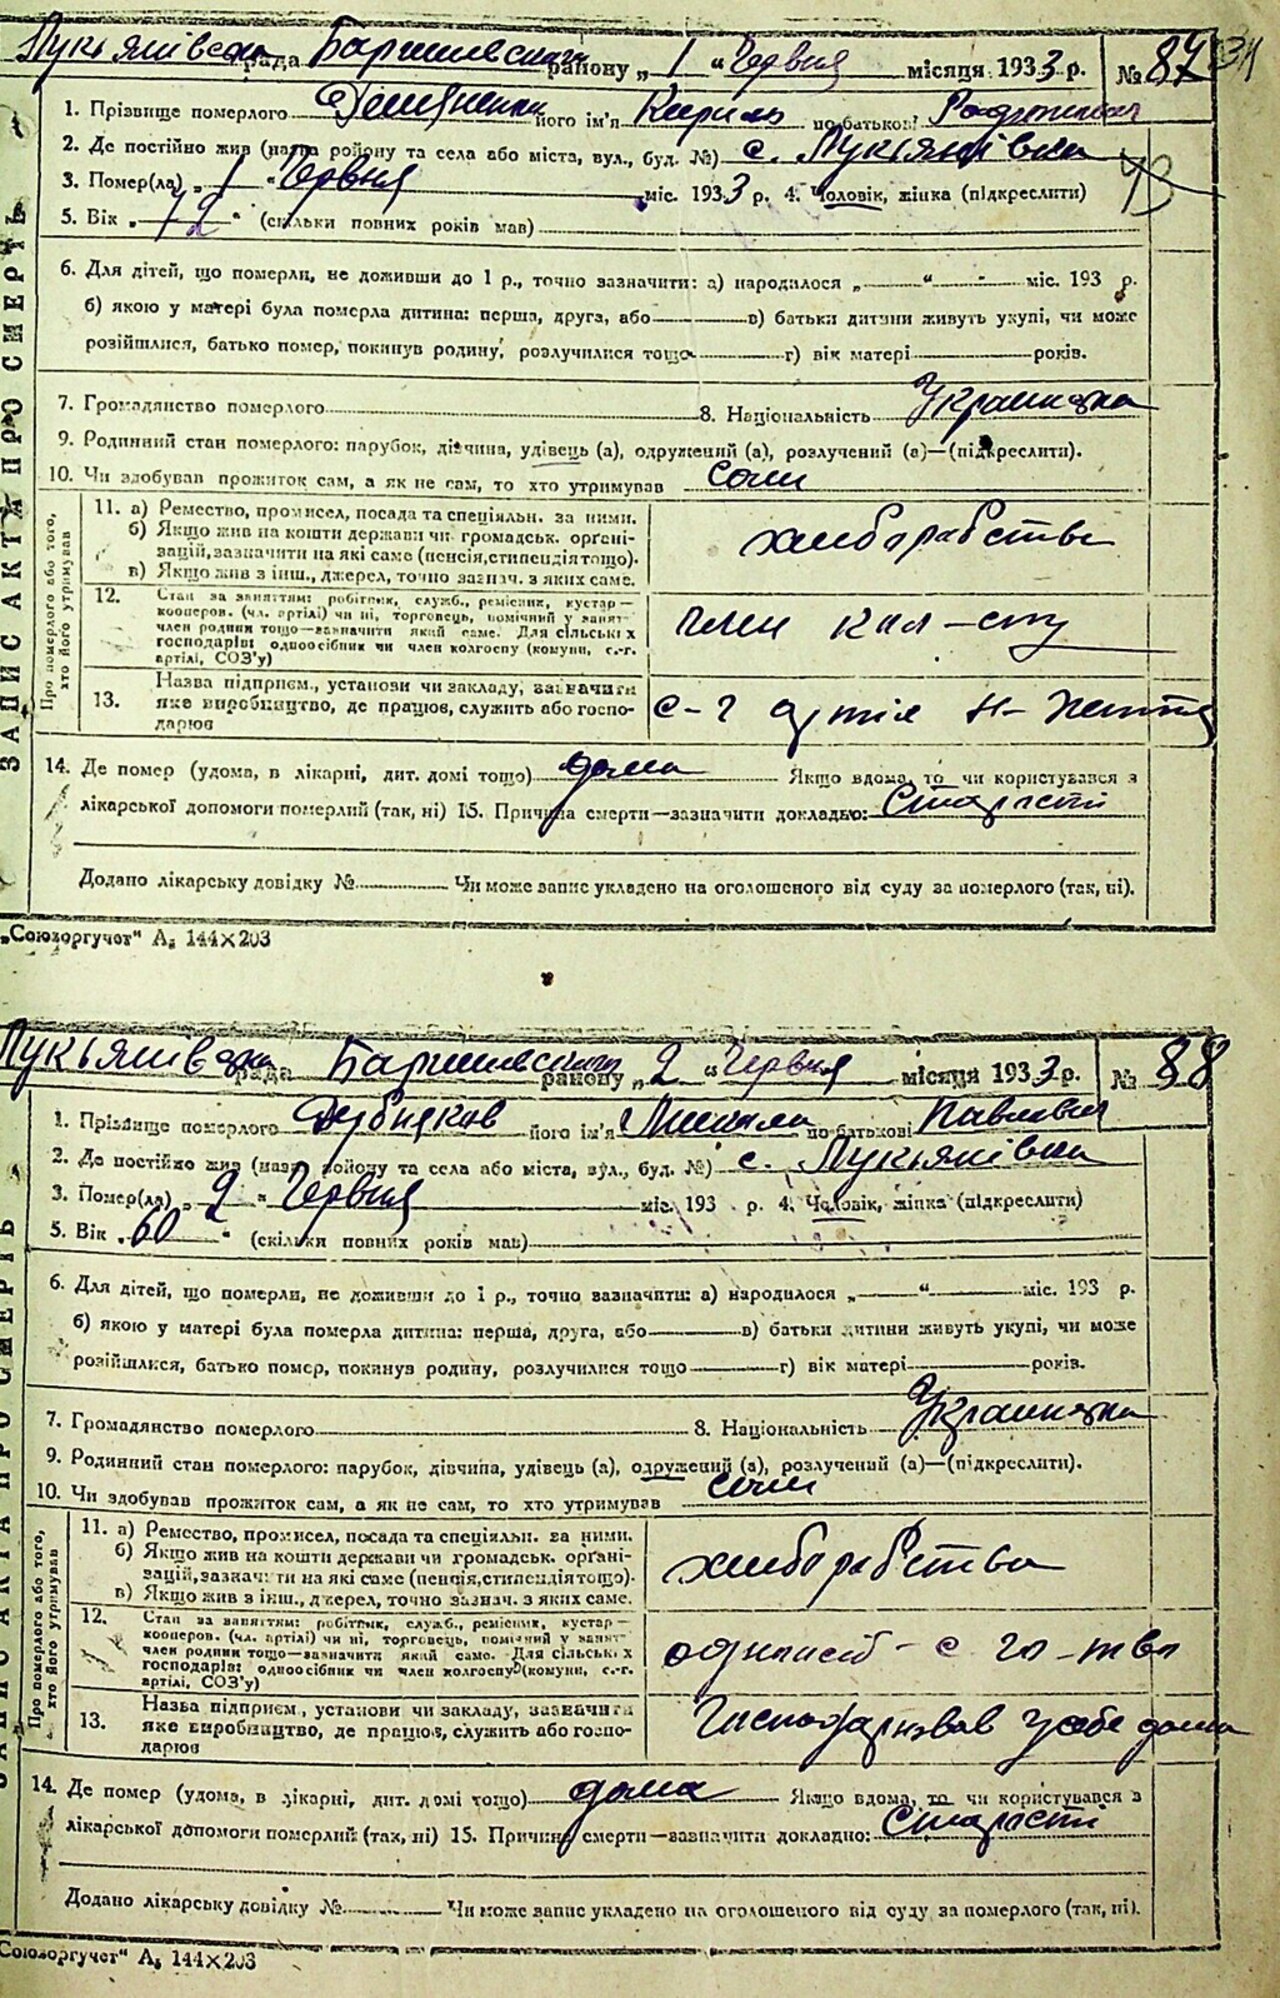 Лукьянівська рада Баришевского району „1“ Червня місяця 1933 р. № 87
1. Прізвище померлого його ім'я Кирило по батькові
2. Де постійно жив (назва району та села або міста, вул., буд. №) с. Лукьянівка
3. Помер(ла) „1“ Червня міс. 1933 р. 4. Чоловік, жінка (підкреслити)
5. Вік „72“ (скільки повних років мав)
6. Для дітей, що померли, не доживши до 1 р., точно зазначити: а) народилося „ “ міс. 193 р.
б) якою у матері була померла дитина: перша, друга, або в) батьки дитини живуть укупі, чи може
розійшлися, батько помер, покинув родину, розлучилися тощо г) вік матері років.
7. Громадянство померлого 8. Національність Украинська
9. Родинний стан померлого: парубок, дівчина, удівець (а), одружений (а), розлучений (а)—(підкреслити).
10. Чи здобував прожиток сам, а як не сам, то хто утримував сам
ЗАПИС АКТА ПРО СМЕРТЬ
Про померлого або того, хто його утримував
11. а) Ремество, промисел, посада та спеціяльн. за ними.
б) Якщо жив на кошти держави чи громадськ. орґані-
зацій, зазначити на які саме (пенсія, стипендія тощо).
в) Якщо жив з інш., джерел, точно зазнач. з яких саме.
хлеборабство
12. Стан за заняттям: робітник, служб., ремісник, кустар—
кооперов. (чл. артілі) чи ні, торговець, помічний у занят.
член родини тощо—зазначити який саме. Для сільських
господарів: одноосібник чи член колгоспу (комуни, с.-г.
артілі, СОЗ'у)
член кол-спу
13. Назва підприєм., установи чи закладу, зазначити
яке виробництво, де працюв, служить або госпо-
дарюв
с-г артіль Н-Життя
14. Де помер (удома, в лікарні, дит. домі тощо) дома Якщо вдома, то чи користувався з
лікарської допомоги померлий (так, ні) 15. Причина смерти—зазначити докладно: Старости
Додано лікарську довідку № Чи може запис укладено на оголошеного від суду за померлого (так, ні).
„Союзоргучет“ А₅ 144×203
Лукьянівська рада Баришевского району „2“ Червня місяця 1933 р. № 88
1. Прізвище померлого Дубняков його ім'я Микола по батькові Павлович
2. Де постійно жив (назва району та села або міста, вул., буд. №) с. Лукьянівка
3. Помер(ла) „2“ Червня міс. 193 р. 4. Чоловік, жінка (підкреслити)
5. Вік „60“ (скільки повних років мав)
6. Для дітей, що померли, не доживши до 1 р., точно зазначити: а) народилося „ “ міс. 193 р.
б) якою у матері була померла дитина: перша, друга, або в) батьки дитини живуть укупі, чи може
розійшлися, батько помер, покинув родину, розлучилися тощо г) вік матері років.
7. Громадянство померлого 8. Національність Украинська
9. Родинний стан померлого: парубок, дівчина, удівець (а), одружений (а), розлучений (а)—(підкреслити).
10. Чи здобував прожиток сам, а як не сам, то хто утримував сам
ЗАПИС АКТА ПРО СМЕРТЬ
Про померлого або того, хто його утримував
11. а) Ремество, промисел, посада та спеціяльн. за ними.
б) Якщо жив на кошти держави чи громадськ. орґані-
зацій, зазначити на які саме (пенсія, стипендія тощо).
в) Якщо жив з інш., джерел, точно зазнач. з яких саме.
хлеборабство
12. Стан за заняттям: робітник, служб., ремісник, кустар—
кооперов. (чл. артілі) чи ні, торговець, помічний у занят.
член родини тощо—зазначити який саме. Для сільських
господарів: одноосібник чи член колгоспу (комуни, с.-г.
артілі, СОЗ'у)
одноосіб - с го-тво
13. Назва підприєм., установи чи закладу, зазначити
яке виробництво, де працюв, служить або госпо-
дарюв
Господарював у себе дома
14. Де помер (удома, в лікарні, дит. домі тощо) дома Якщо вдома, то чи користувався з
лікарської допомоги померлий (так, ні) 15. Причина смерти—зазначити докладно: Старости
Додано лікарську довідку № Чи може запис укладено на оголошеного від суду за померлого (так, ні).
Союзоргучет“ А₅ 144×203